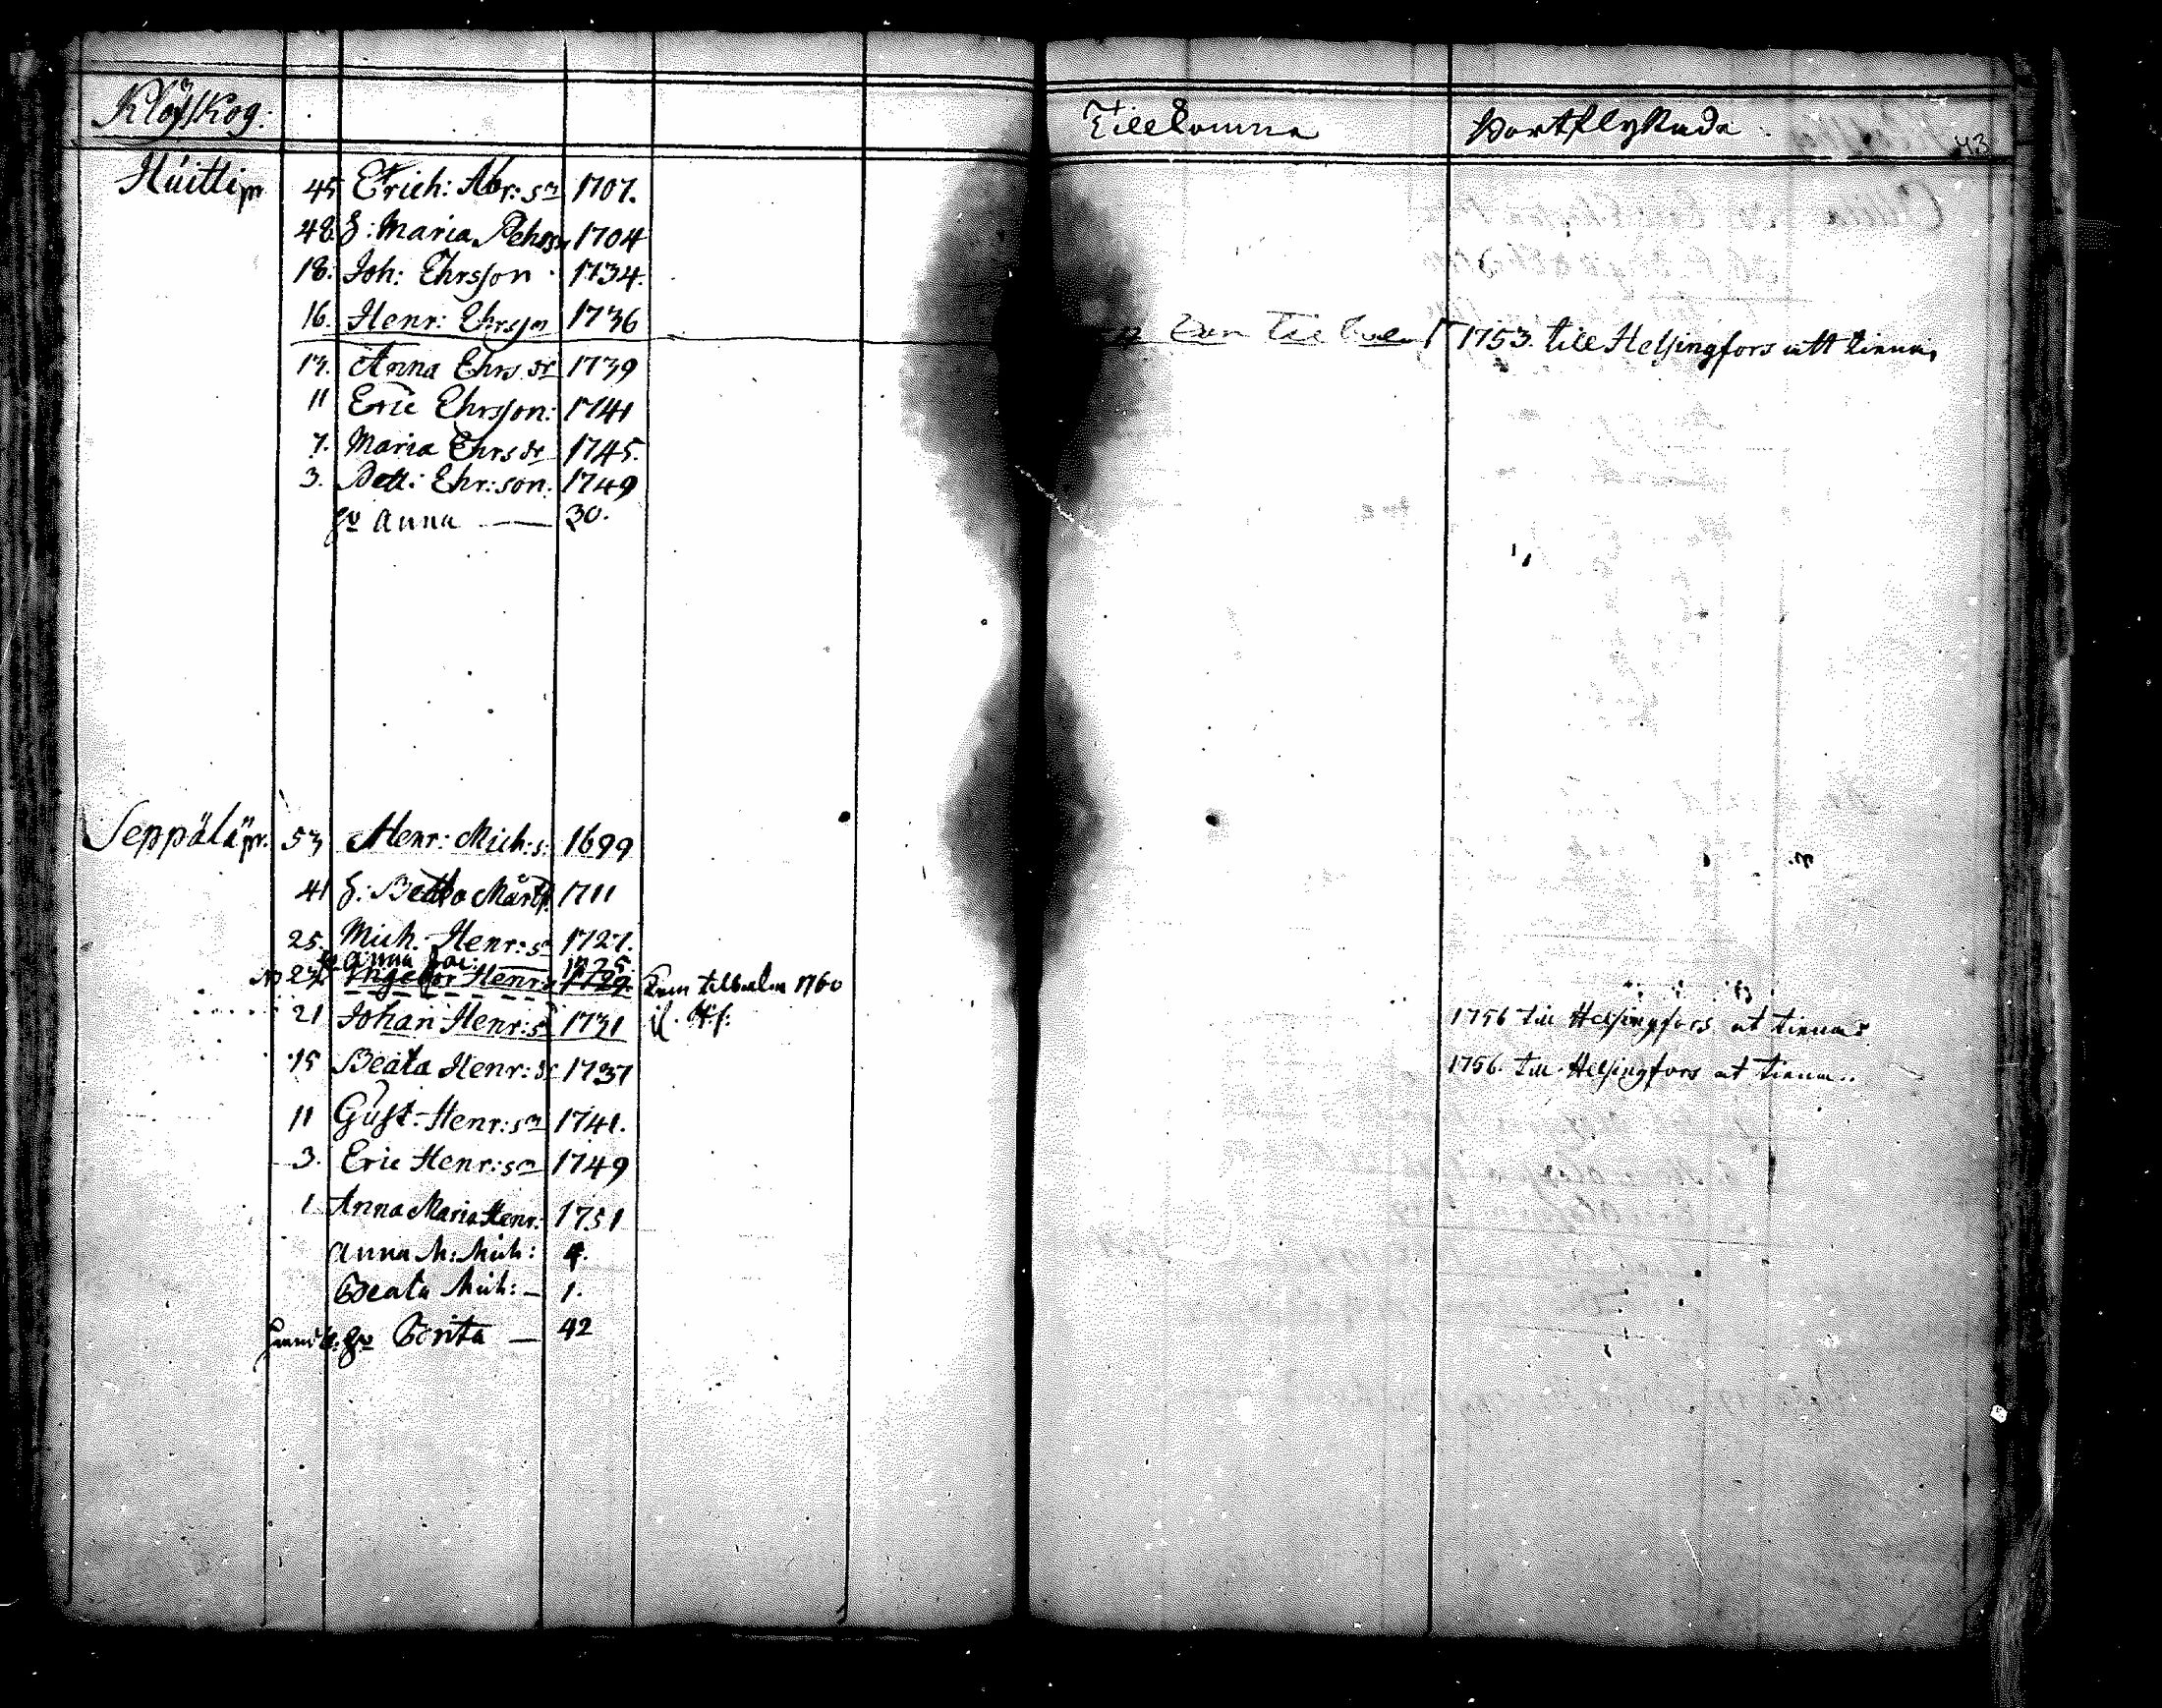 Klöfskog.
Tillkomna Bortflyttade 43
Huitti pr 45 Erich: Abr: sn 1707.
48. h: Maria Pehrs 1704
18. Joh: Ehrsson 1734.
16. Henr: Ehrssn 1736 kom tilbaka 1753. till Helsingfors att tiena
13. Anna Ehrs dr 1739
11 Eric Ehrsson: 1741
7. Maria Ehrs dr 1745.
3. Bett: Ehr:son: 1749
hu Anna — 30.
Seppälä pr. 53 Henr: Mich:s: 1699
41 h: Beata Mårt 1711
25. Mich. Henr: sn 1727.
hu Anna 1725
23 Ingebor Henr: 1729. kom tilbaka 1760
21 Johan Henr: s 1731 1756 till Helsingfors at tiena
15 Beata Henr: dr 1737 1756. till Helsingfors at tiena
11 Gust. Henr: sn 1741.
3. Eric Henr: sn 1749
1 Anna Maria Henr. 1751
Anna M: Mich: 4.
Beata Mich: — 1.
hu Berita — 42